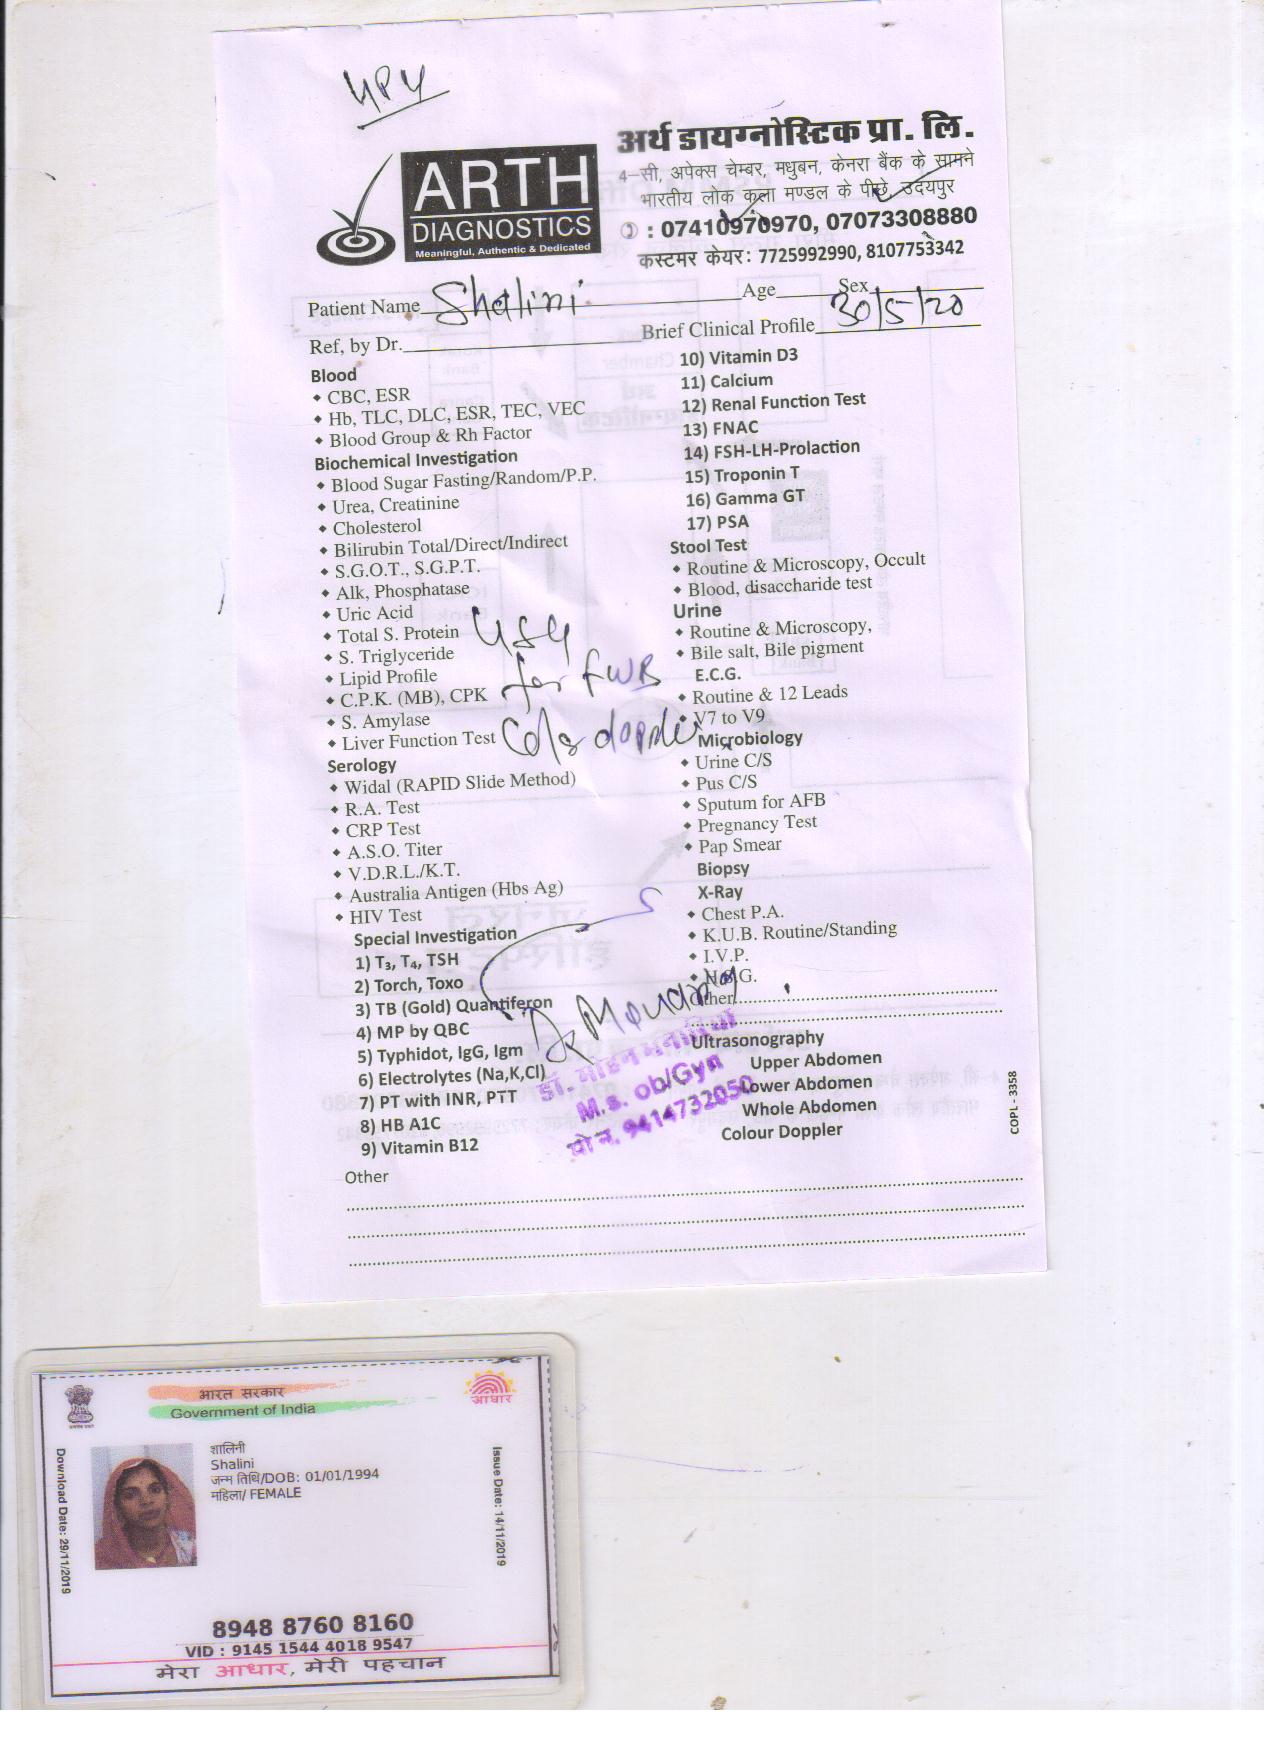 अर्थ डायग्नोस्टिक प्रा. लि.
4-सी, अपेक्स चेम्बर, मधुबन, केनरा बैंक के सामने
भारतीय लोक कला मण्डल के पीछे, उदयपुर
ARTH
DIAGNOSTICS
Meaningful, Authentic & Dedicated
: 07410970970, 07073308880
कस्टमर केयर: 7725992990, 8107753342
Patient Name Shalini Age Sex
Ref, by Dr. Brief Clinical Profile 30/5/20
Blood
CBC, ESR
Hb, TLC, DLC, ESR, TEC, VEC
Blood Group & Rh Factor
Biochemical Investigation
Blood Sugar Fasting/Random/P.P.
Urea, Creatinine
Cholesterol
Bilirubin Total/Direct/Indirect
S.G.O.T., S.G.P.T.
Alk, Phosphatase
Uric Acid
Total S. Protein
S. Triglyceride
Lipid Profile
C.P.K. (MB), CPK
S. Amylase
Liver Function Test
USG
for FWB
Color doppler
Serology
Widal (RAPID Slide Method)
R.A. Test
CRP Test
A.S.O. Titer
V.D.R.L./K.T.
Australia Antigen (Hbs Ag)
HIV Test
Special Investigation
1) T₃, T₄, TSH
2) Torch, Toxo
3) TB (Gold) Quantiferon
4) MP by QBC
5) Typhidot, IgG, Igm
6) Electrolytes (Na,K,Cl)
7) PT with INR, PTT
8) HB A1C
9) Vitamin B12
10) Vitamin D3
11) Calcium
12) Renal Function Test
13) FNAC
14) FSH-LH-Prolaction
15) Troponin T
16) Gamma GT
17) PSA
Stool Test
Routine & Microscopy, Occult
Blood, disaccharide test
Urine
Routine & Microscopy,
Bile salt, Bile pigment
E.C.G.
Routine & 12 Leads
V7 to V9
Microbiology
Urine C/S
Pus C/S
Sputum for AFB
Pregnancy Test
Pap Smear
Biopsy
X-Ray
Chest P.A.
K.U.B. Routine/Standing
I.V.P.
H.S.G.
Other
Dr
डॉ. मोहन
M.s. ob/Gyn
मो न. 9414732050
Ultrasonography
Upper Abdomen
Lower Abdomen
Whole Abdomen
Colour Doppler
COPL - 3358
Other
भारत सरकार
Government of India
आधार
शालिनी
Shalini
जन्म तिथि/DOB: 01/01/1994
महिला/ FEMALE
Download Date: 29/11/2019
Issue Date: 14/11/2019
8948 8760 8160
VID : 9145 1544 4018 9547
मेरा आधार, मेरी पहचान